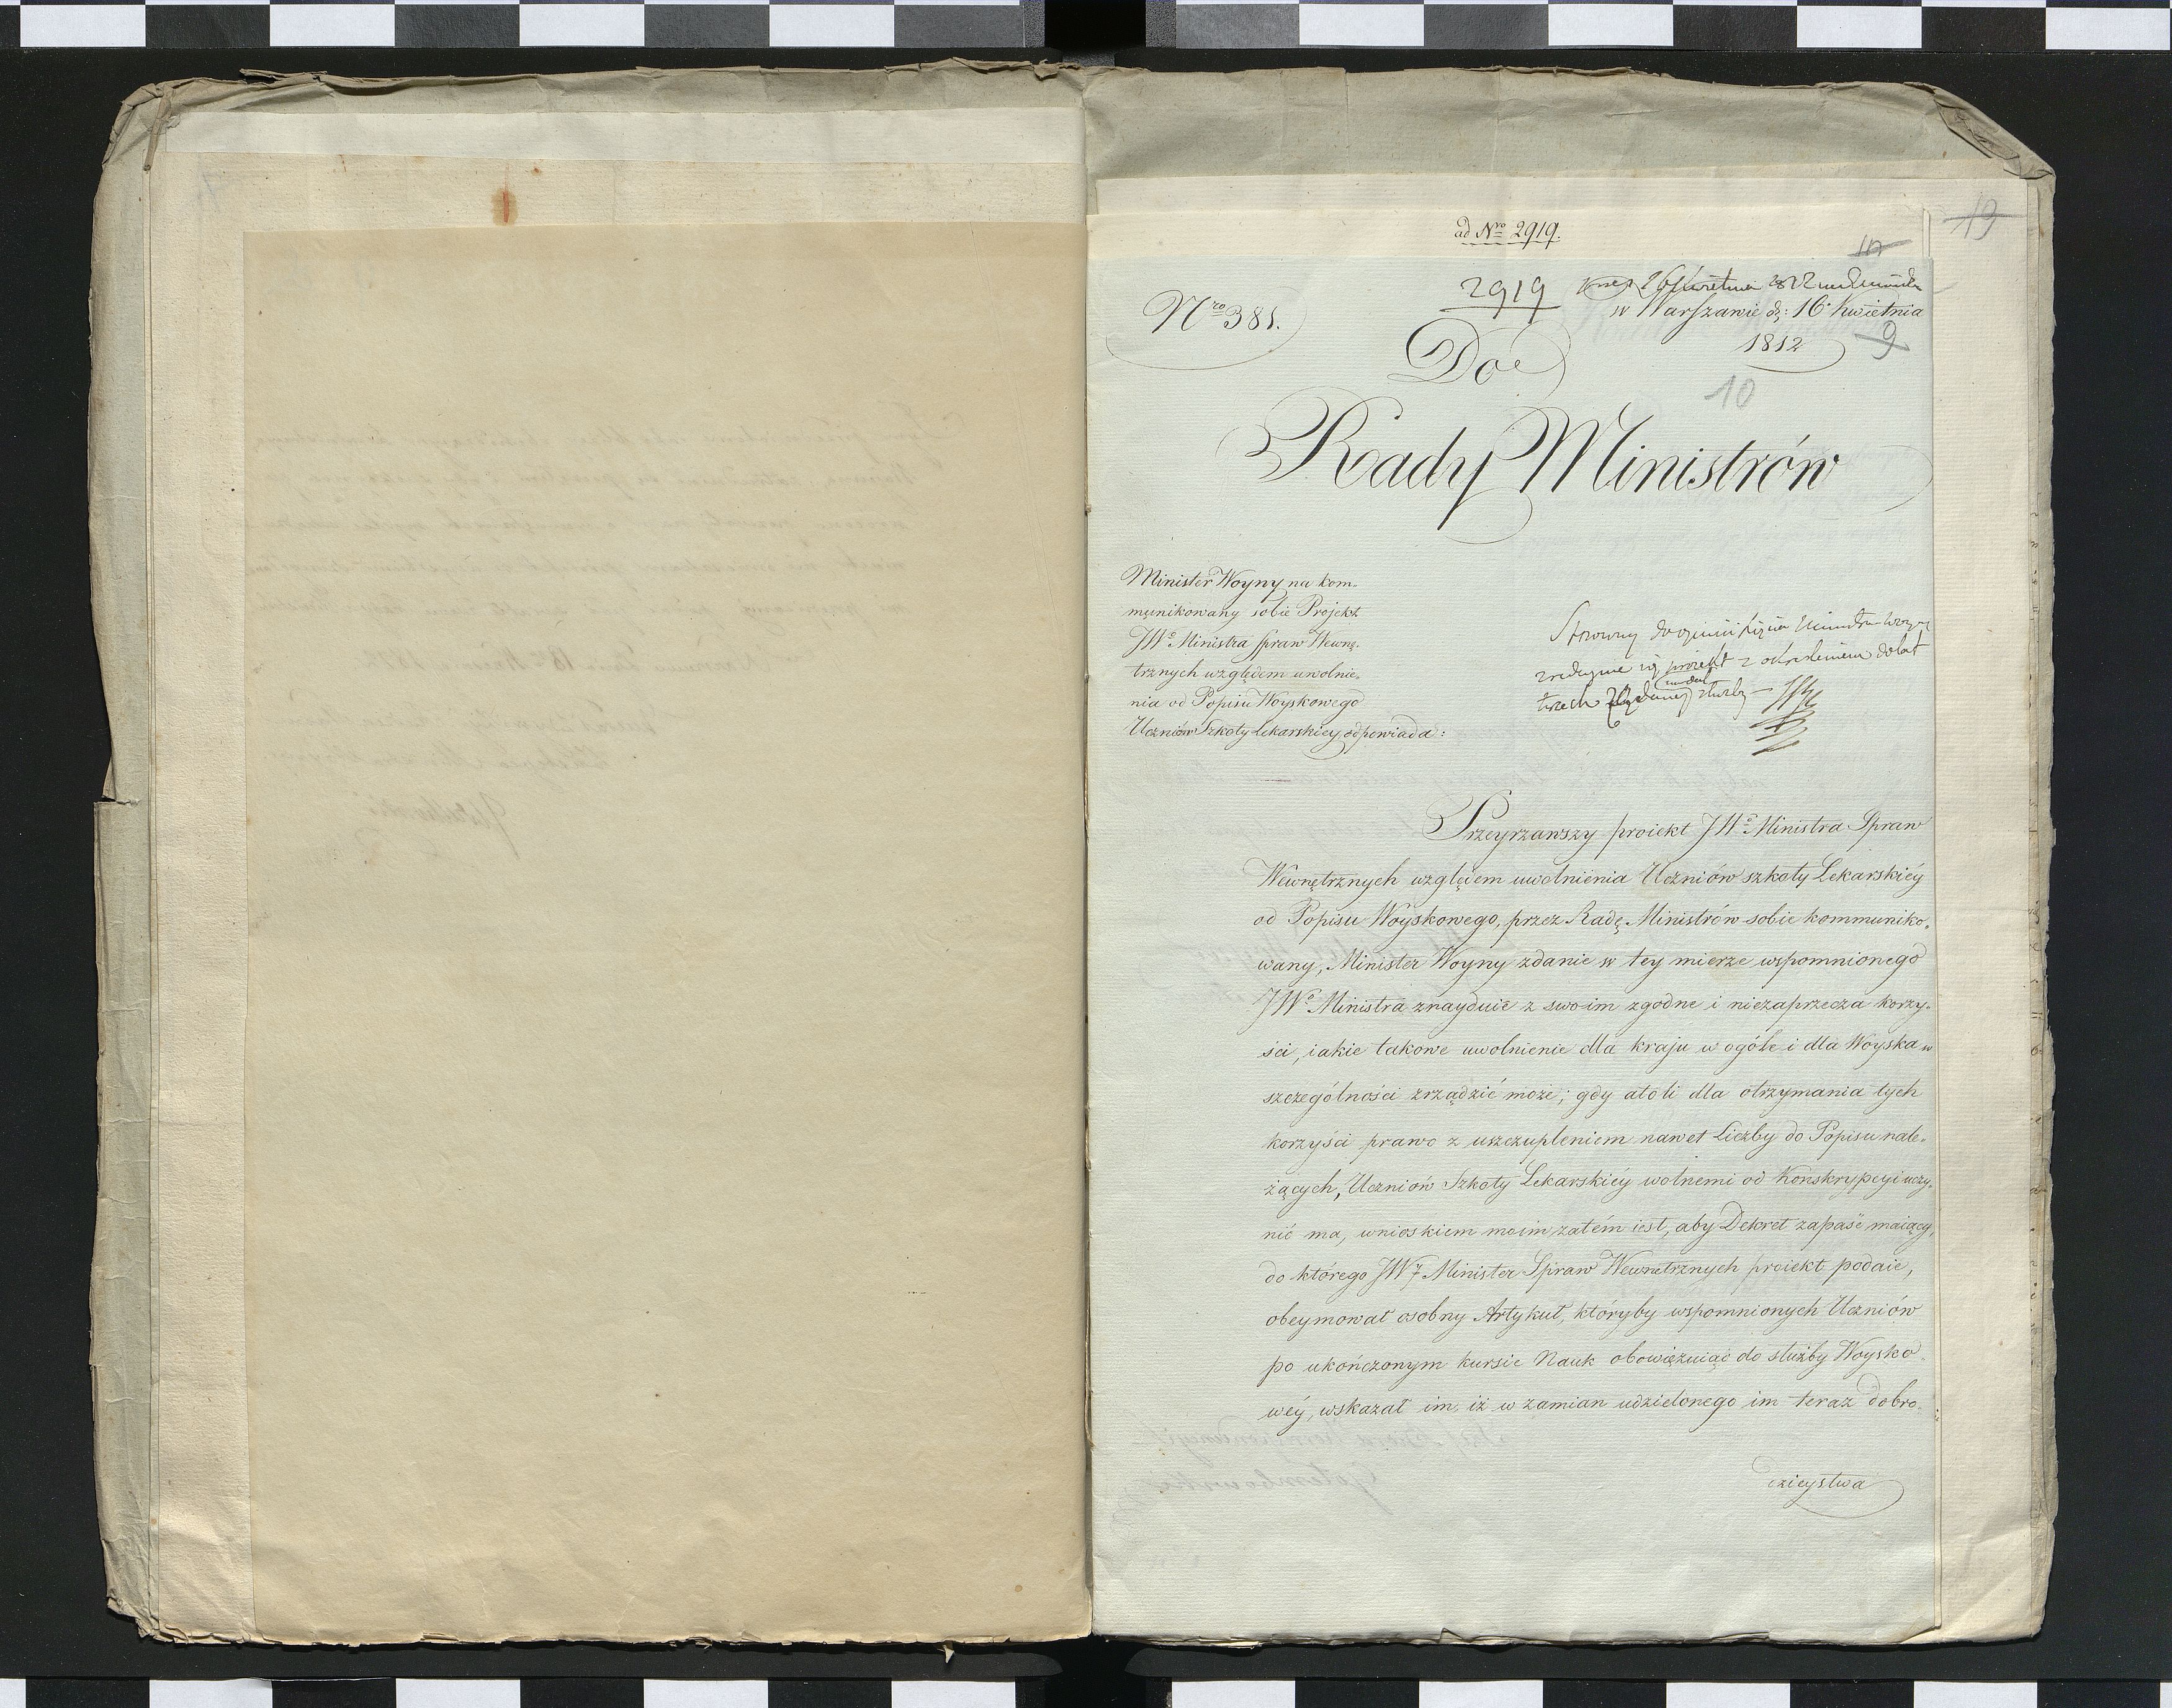 ad Nro 2919.
19
10
2919
Nro 381.
w Warszawie d: 16 Kwietnia
1812
9
Do
10
Rady Ministrów
Minister Woyny na kom-
munikowany sobie Projekt
JWo Ministra Spraw Wewnę-
trznych względem uwolnie-
nia od Popisu Woyskowego
Uczniów Szkoły Lekarskiey, odpowiada:
Stosowny do opinii
projekt z określeniem do lat
trzech
Przeyrzawszy proiekt JWo Ministra Spraw
Wewnętrznych względem uwolnienia Uczniów szkoły Lekarskiéy
od Popisu Woyskowego, przez Radę Ministrów sobie kommuniko-
wany, Minister Woyny zdanie w tey mierze wspomnionego
JWo Ministra znayduie z swoim zgodne i niezaprzecza korzy-
ści, iakie takowe uwolnienie dla kraju w ogóle i dla Woyska w
szczególności zrządzić może; gdy atoli dla otrzymania tych
korzyści prawo z uszczupleniem nawet Liczby do Popisu nale-
żących, Uczniów Szkoły Lekarskiéy wolnemi od Konskrypcyi uczy-
nić ma, wnioskiem moim zatém iest, aby Dekret zapaść maiący,
do którego JWy Minister Spraw Wewnetrznych proiekt podaie,
obeymował osobny Artykuł, któryby wspomnionych Uczniów
po ukończonym kursie Nauk obowięzuiąć do służby Woysko-
wéy, wskazał im, iż w zamian udzielonego im teraz dobro-
dzieystwa